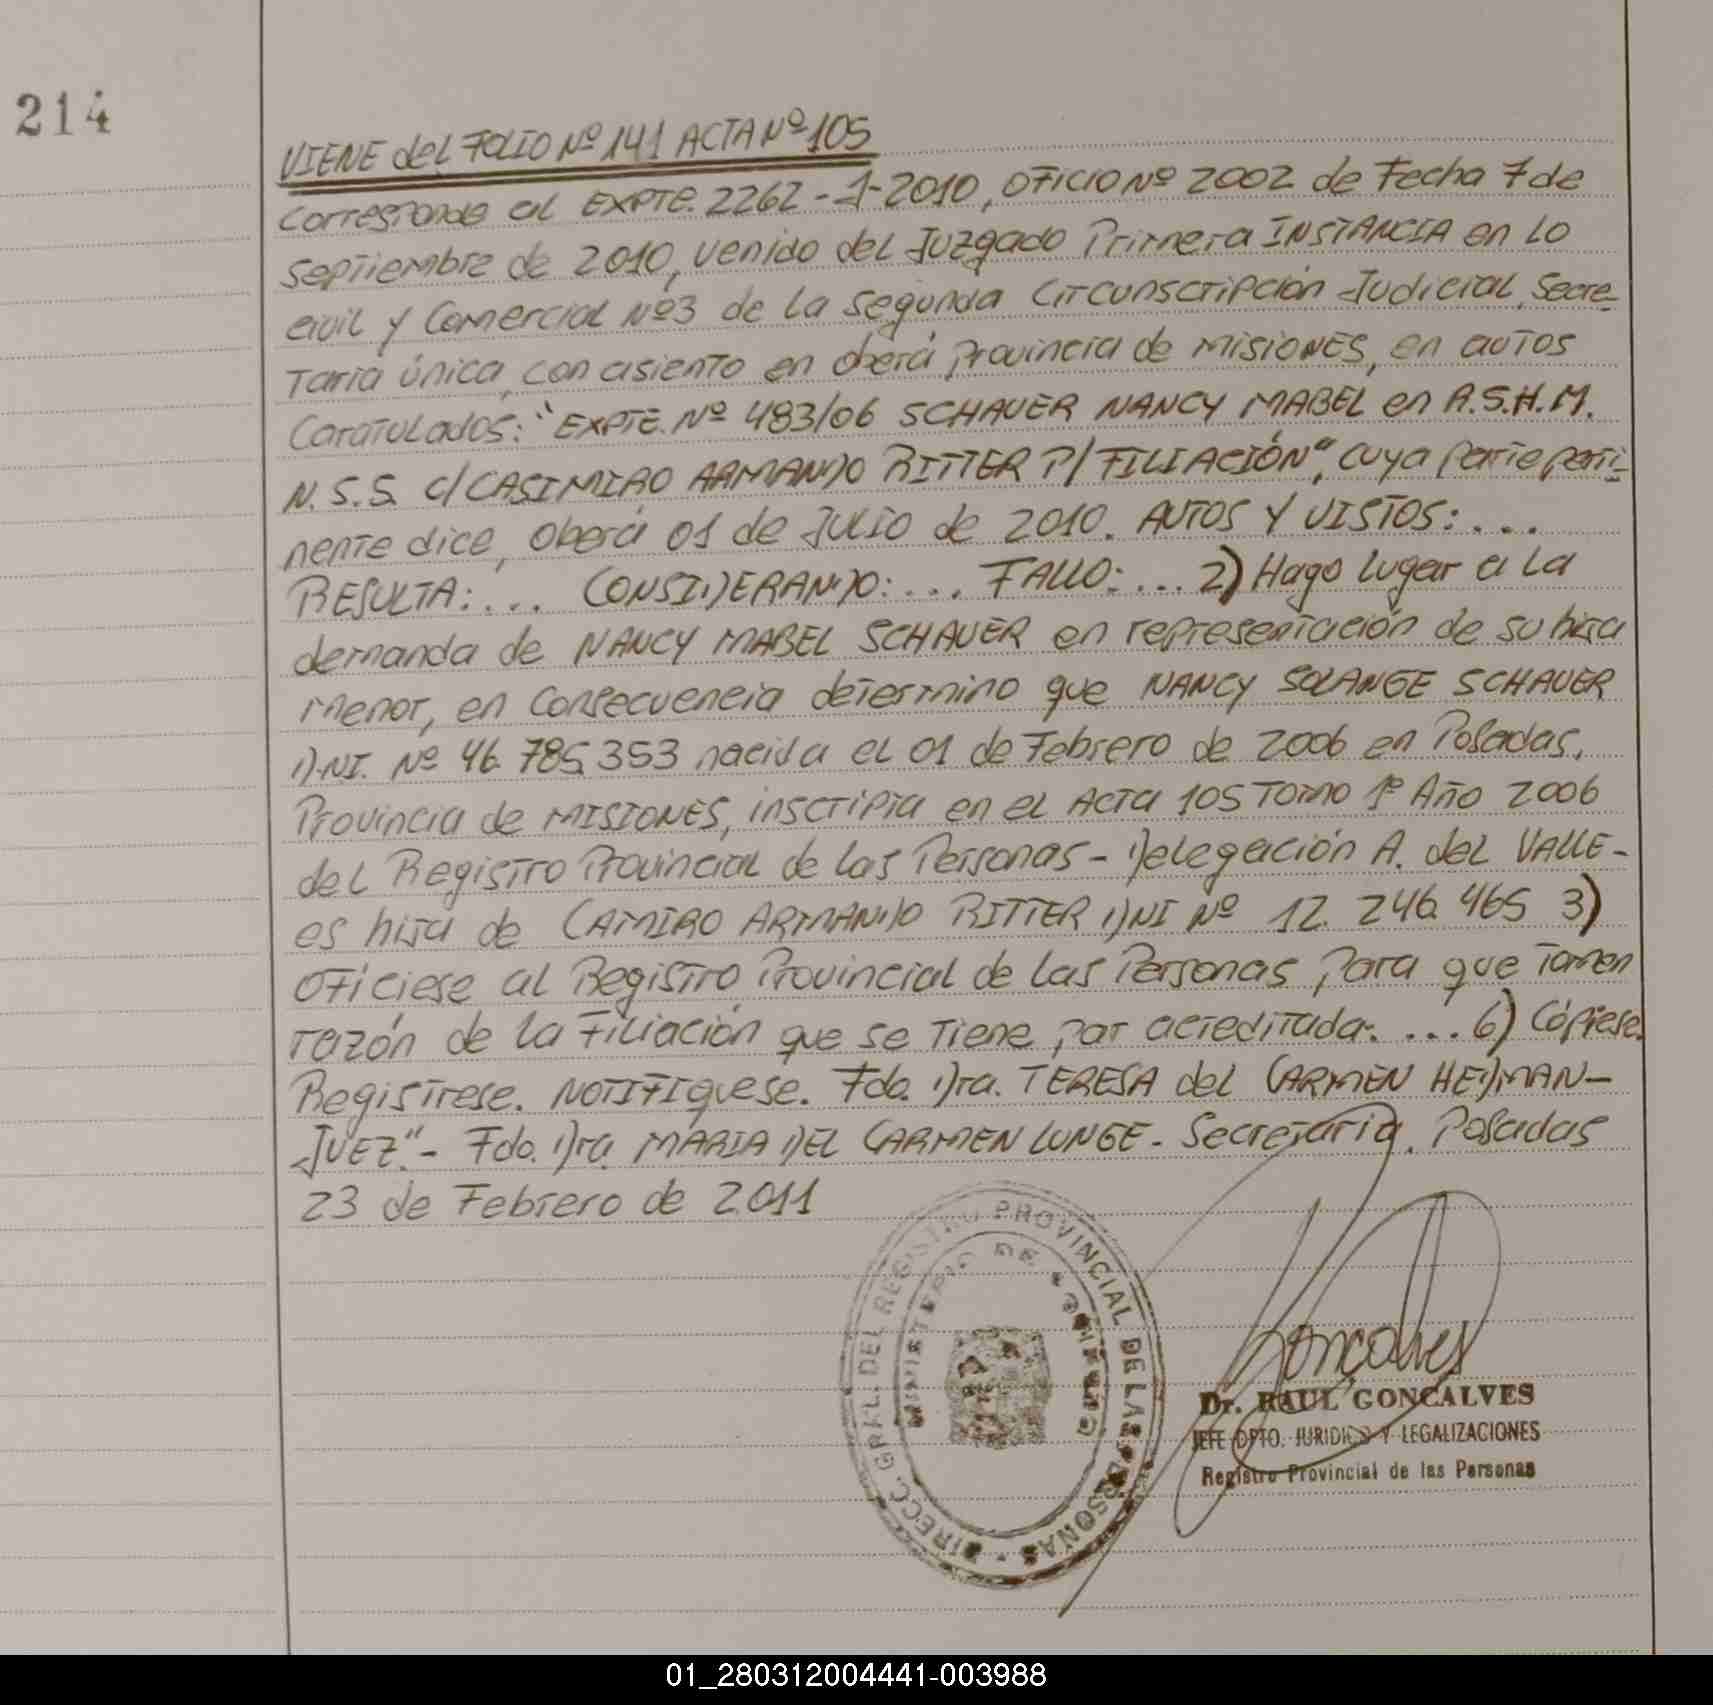 214
VIENE del FOLIO Nº 141 ACTA Nº 105
Corresponde al EXPTE. 2262-J-2010, OFICIO Nº 2002 de Fecha 7 de
Septiembre de 2010, venido del Juzgado Primera INSTANCIA en lo
civil y Comercial Nº3 de la Segunda Circunscripción Judicial, Secre-
Taria única, con asiento en oberá, provincia de MISIONES, en autos
Caratulados: "EXPTE. Nº 483/06 SCHAUER NANCY MABEL en R.S.H.M.
N.S.S. c/ CASIMIRO ARMANDO RITTER P/ FILIACIÓN", cuya parte perti-
nente dice, Oberá 01 de JULIO de 2010. AUTOS Y VISTOS: ...
RESULTA: ... CONSIDERANDO: ... FALLO: ... 2) Hago lugar a la
demanda de NANCY MABEL SCHAUER en representación de su hija
menor, en consecuencia determino que NANCY SOLANGE SCHAUER
DNI. Nº 46.785.353 nacida el 01 de Febrero de 2006 en Posadas,
Provincia de MISIONES, inscripta en el Acta 105 Tomo 1º Año 2006
del Registro Provincial de las Personas - Delegación A. del VALLE -
es hija de CAMIRO ARMANDO RITTER DNI Nº 12.246.465 3)
Ofíciese al Registro Provincial de las Personas para que Tomen
razón de la Filiación que se Tiene por acreditada. ... 6) Cópiese.
Regístrese. NOTIFIQUESE. Fdo. Dra. TERESA del CARMEN HEDMAN-
JUEZ".- Fdo. Dra. MARIA DEL CARMEN LUNGE - Secretaria. Posadas
23 de Febrero de 2011
DIRECC. GRAL. DEL REGISTRO PROVINCIAL DE LAS PERSONAS
MINISTERIO DE
Goncalves
Dr. RAUL GONCALVES
JEFE DPTO. JURIDICO Y LEGALIZACIONES
Registro Provincial de las Personas
01_280312004441-003988